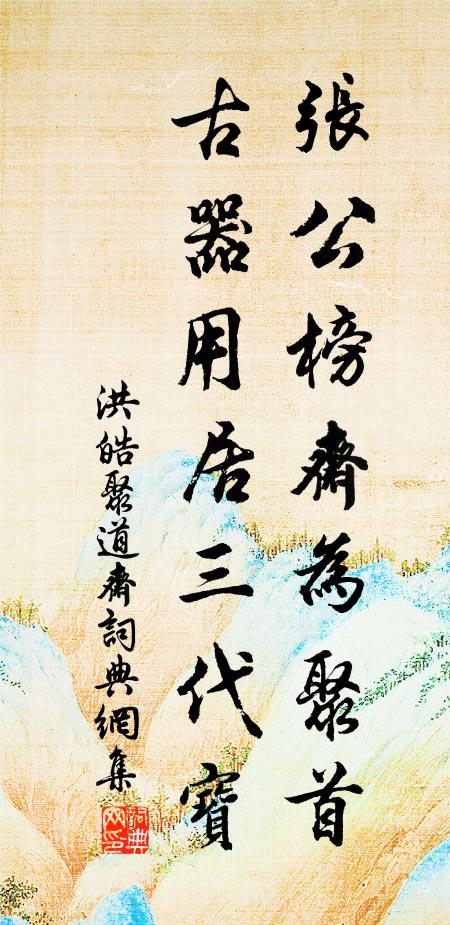 張公榜齋為聚首
古器用居三代寶
洪皓聚道齋詞典網集
詞典